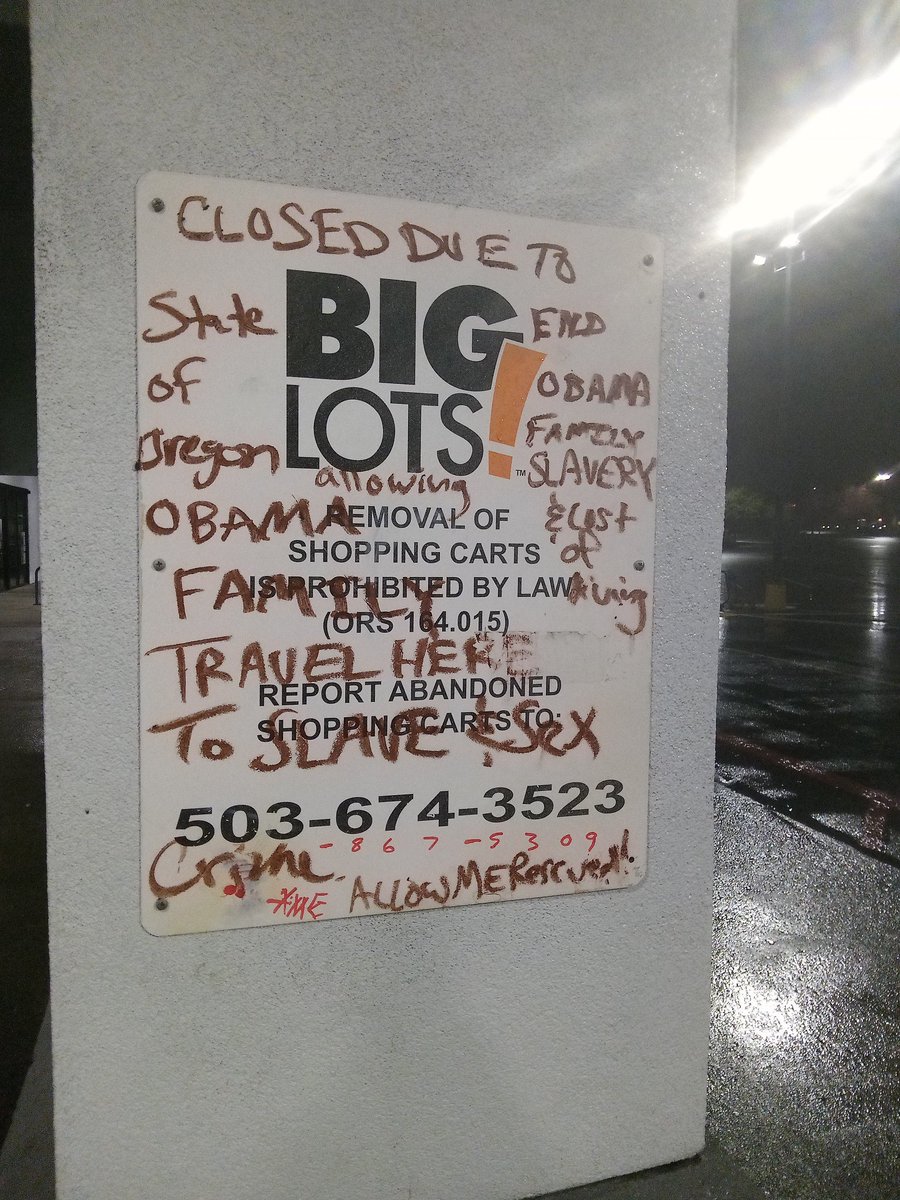 CLOSED DUE TO
State
of
Oregon
allowing
OBAMA
FAMILY
TRAVEL HERE
TO SLAVE & Sex
Crime.
END
OBAMA
FAMILY
SLAVERY
& Cost
of
living
BIG
LOTS!™
REMOVAL OF
SHOPPING CARTS
IS PROHIBITED BY LAW
(ORS 164.015)
REPORT ABANDONED
SHOPPING CARTS TO:
503-674-3523
-867-5309
ALLOW ME Rescued!